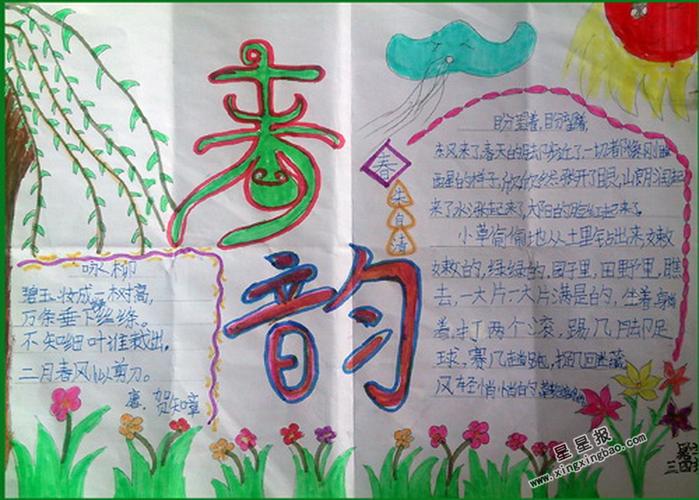 春
韵
咏柳
碧玉妆成一树高,
万条垂下丝绦。
不知细叶谁裁出,
二月春风似剪刀。
唐.贺知章
春
朱自清
盼望着,盼望着,
东风来了,春天的脚步近了。一切都像刚
睡的样子,欣欣然张开了眼,山朗润起
来了,水涨起来了,太阳的脸红起来了。
小草偷偷地从土里钻出来,嫩
嫩的,绿绿的,园子里,田野里,瞧
去,一大片一大片满是的,坐着,躺
着,打两个滚,踢几脚足
球,赛几趟跑,捉几回迷藏
风轻悄悄的
星星报
www.xingxingbao.com